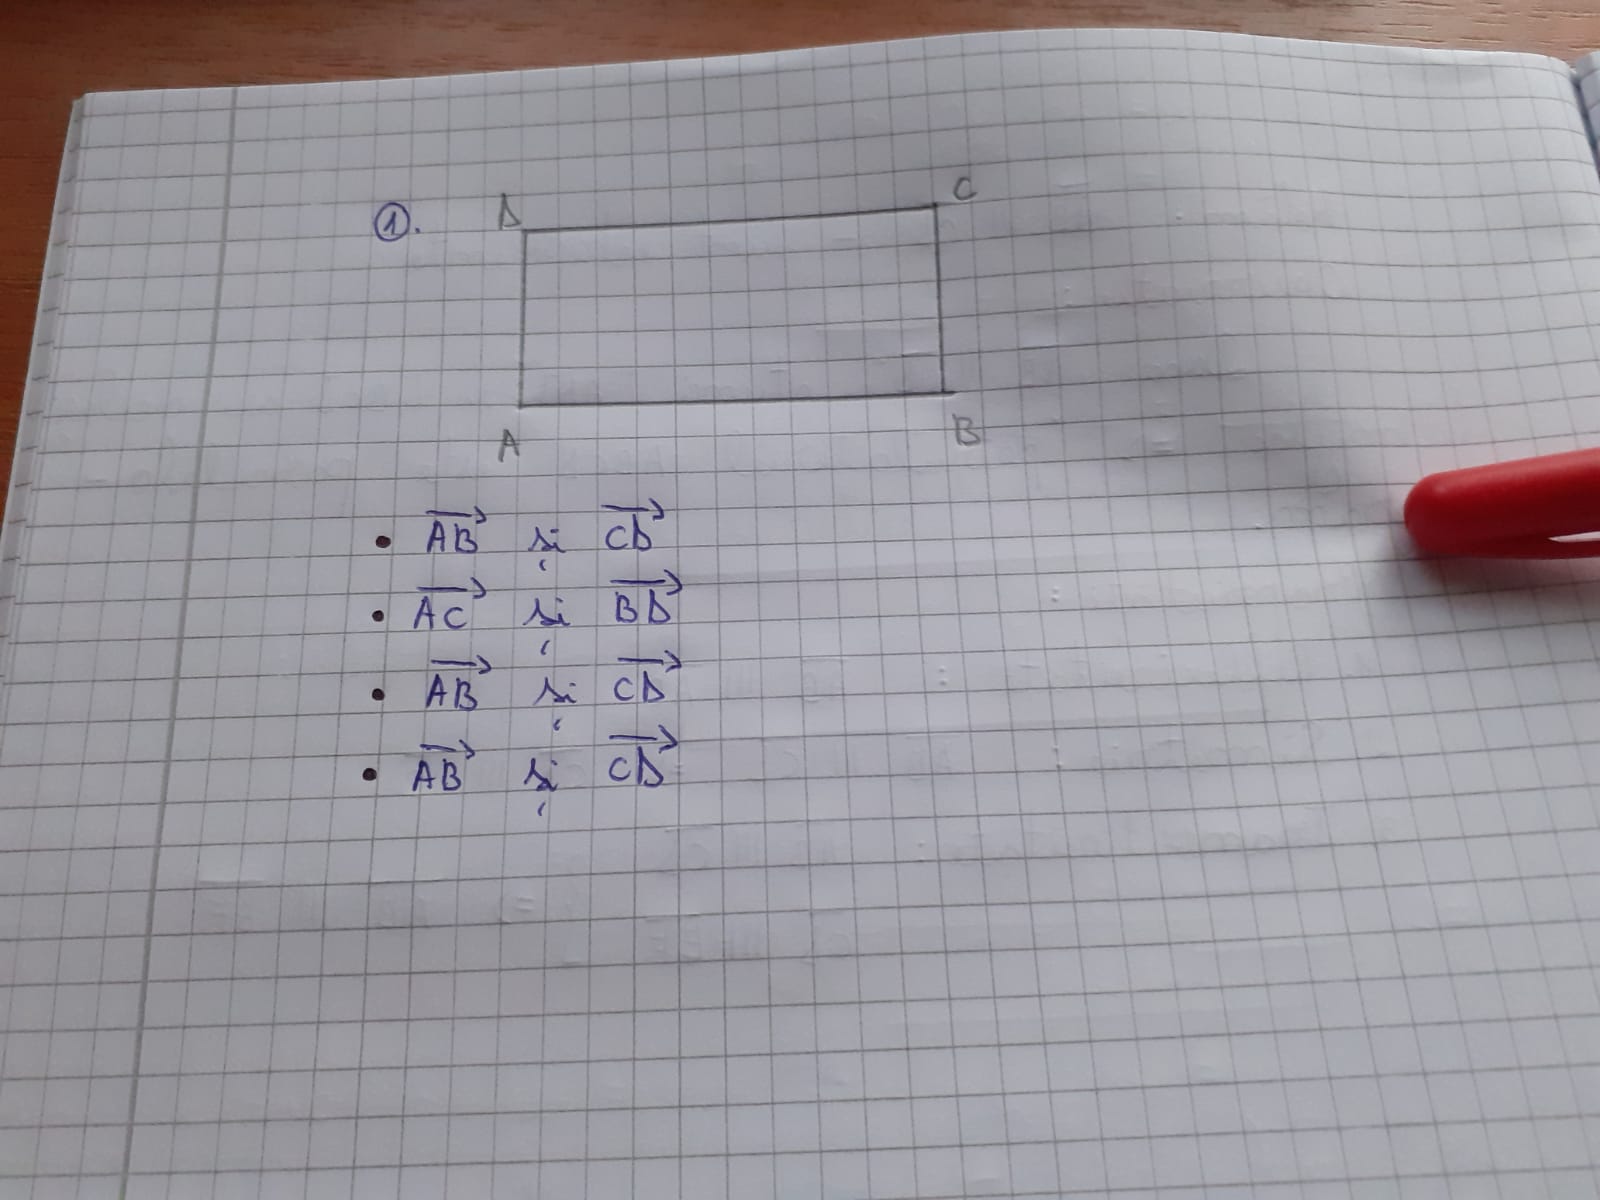 ①. D C
A B
• $\overrightarrow{AB}$ și $\overrightarrow{CD}$
• $\overrightarrow{AC}$ și $\overrightarrow{BD}$
• $\overrightarrow{AB}$ și $\overrightarrow{CD}$
• $\overrightarrow{AB}$ și $\overrightarrow{CD}$